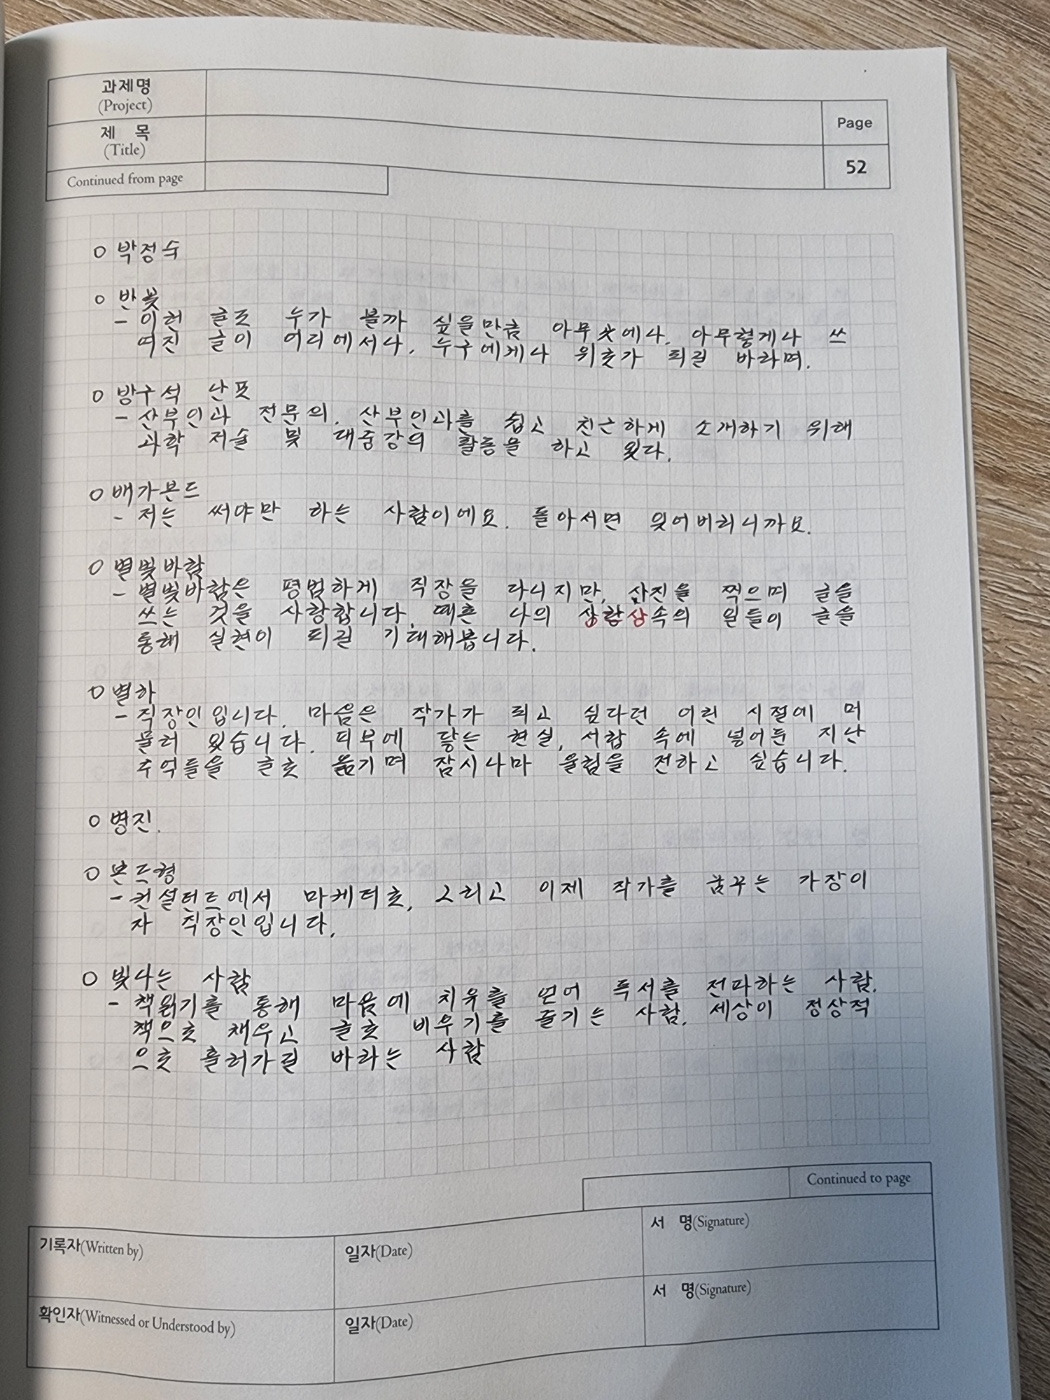 과제명
(Project)
제 목
(Title)
Page
Continued from page
52
○ 박정수
○ 반꽃
- 이런 글도 누가 볼까 싶을만큼 아무곳에나, 아무렇게나 쓰
여진 글이 어디에서나, 누구에게나 위로가 되길 바라며.
○ 방구석 난포
- 산부인과 전문의. 산부인과를 쉽고 친근하게 소개하기 위해
과학 저술 및 대중강의 활동을 하고 있다.
○ 배가본드
- 저는 써야만 하는 사람이에요. 돌아서면 잊어버리니까요.
○ 별빛바람
- 별빛바람은 평범하게 직장을 다니지만, 사진을 찍으며 글을
쓰는 것을 사랑합니다. 때론 나의 상상속의 일들이 글을
통해 실현이 되길 기대해봅니다.
○ 별하
- 직장인입니다. 마음은 작가가 되고 싶다던 어린 시절에 머
물러 있습니다. 피부에 닿는 현실, 서랍 속에 넣어둔 지난
추억들을 글로 옮기며 잠시나마 울림을 전하고 싶습니다.
○ 병진.
○ 본드형
- 컨설턴트에서 마케터로, 그리고 이제 작가를 꿈꾸는 가장이
자 직장인입니다.
○ 빛나는 사람
- 책읽기를 통해 마음에 치유를 얻어 독서를 전파하는 사람.
책으로 채우고 글로 비우기를 즐기는 사람. 세상이 정상적
으로 흘러가길 바라는 사람
Continued to page
기록자(Written by)
일자(Date)
서 명(Signature)
확인자(Witnessed or Understood by)
일자(Date)
서 명(Signature)